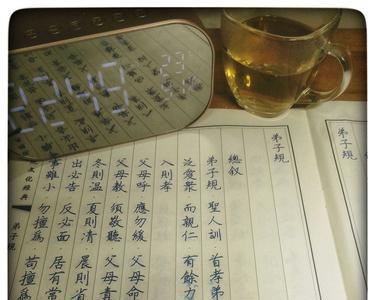 弟子規
弟子規
總叙
弟子規 聖人訓 首孝弟
泛愛衆 而親仁 有餘力
入則孝
父母呼 應勿緩 父母命
父母教 須敬聽 父母責
冬則温 夏則清 晨則省
出必告 反必面 居有常
事雖小 勿擅為 苟擅為
文化經典
弟子規
22:49